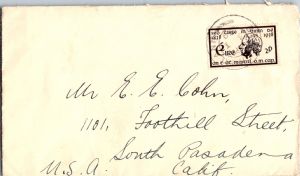 Éire 2p
Mr E. E. Cohn,
1101, Foothill Street,
South Pasadena
U.S.A. Calif.